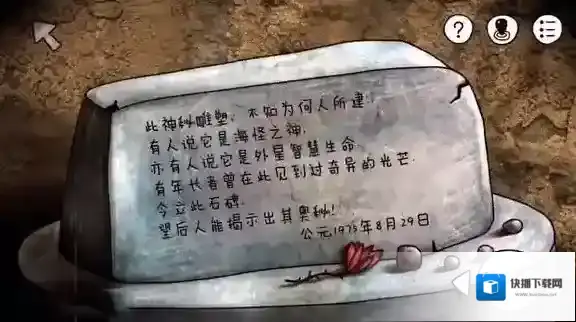 ?
此神秘雕塑，不知为何人所建.
有人说它是海怪之神,
亦有人说它是外星智慧生命
有年长者曾在此见到过奇异的光芒.
今立此石碑.
望后人能揭示出其奥秘!
公元1975年8月29日
快播下载网